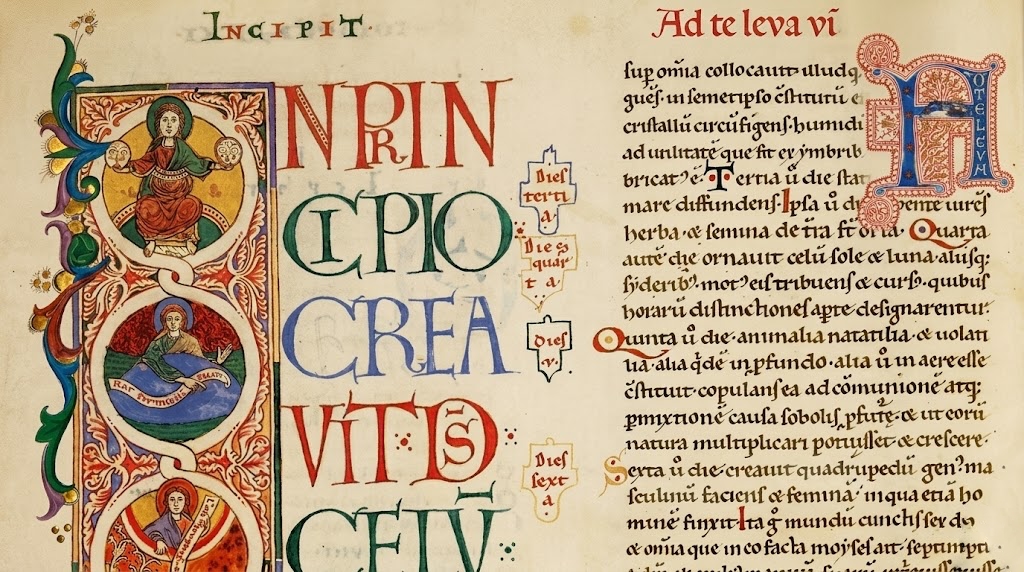 INCIPIT
IN PRIN
CIPIO
CREA
VIT DS
CELŪ
RAT
Dies
terti
a.
Dies
quar
ta
Dies
v.
Dies
sext
a
Ad te leva vi
A
D TE LEVA
sup om̄ia collocavit illud q
gēs in semetipso c̄stitutū
cristallū circūfigens humidi
ad utilitatē que fit ex ymbrib
bricat᷒ ē. Tertia ū die stat
mare diffundens. Ipsa ū di vires
herba & semina de t̄ra Quarta
autē die ornavit celū sole & luna aliisq;
siderib᷒ mot᷒ eis tribuens & curs᷒ quibus
horarū distinctiones apte designarentur.
Quinta ū die animalia natatilia & volati
lia alia q̄dē in p̄fundo alia ū in aere esse
c̄stituit copulans ea ad cōmunionē atq;
p̄mixtionē causa sobolis & ut eorū
natura multiplicari potuisset & crescere.
Sexta ū die creavit quadrupedū gen᷒ ma
sculinū faciens & feminā in qua etiā ho
minē finxit. Ita g̊ mundū cunctis sex di
& omia que in eo facta moyses ait septimpti